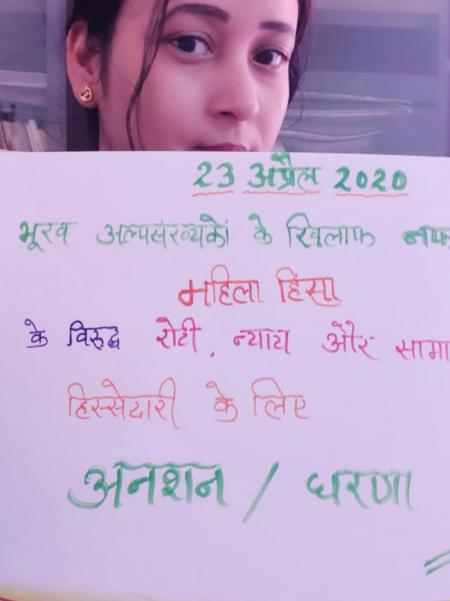 23 अप्रैल 2020
भूख अल्पसंख्यकों के खिलाफ
महिला हिंसा
के विरुद्ध रोटी, न्याय और
हिस्सेदारी के लिए
अनशन / धरणा